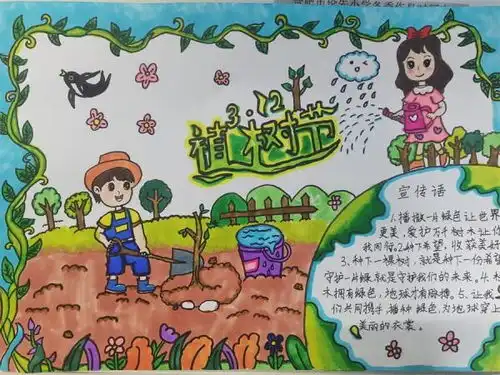 3.12
植树节
宣传语
1.播撒一片绿色让世界
更美,爱护万千树木让你
我同盼.2.种下希望,收获美好
3.种下一棵树,就是种下一份希望
守护一片绿就是守护我们的未来.4.
木拥有绿色,地球才有脉搏.5.让我
们共同携手,播种绿色,为地球穿上
美丽的衣裳.